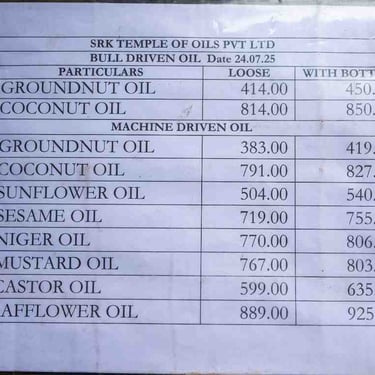 SRK TEMPLE OF OILS PVT LTD
BULL DRIVEN OIL Date 24.07.25
PARTICULARS LOOSE WITH BOTT
GROUNDNUT OIL 414.00 450.
COCONUT OIL 814.00 850.
MACHINE DRIVEN OIL
GROUNDNUT OIL 383.00 419.
COCONUT OIL 791.00 827.
SUNFLOWER OIL 504.00 540.
SESAME OIL 719.00 755.
NIGER OIL 770.00 806.
MUSTARD OIL 767.00 803.
CASTOR OIL 599.00 635.
AFFLOWER OIL 889.00 925.